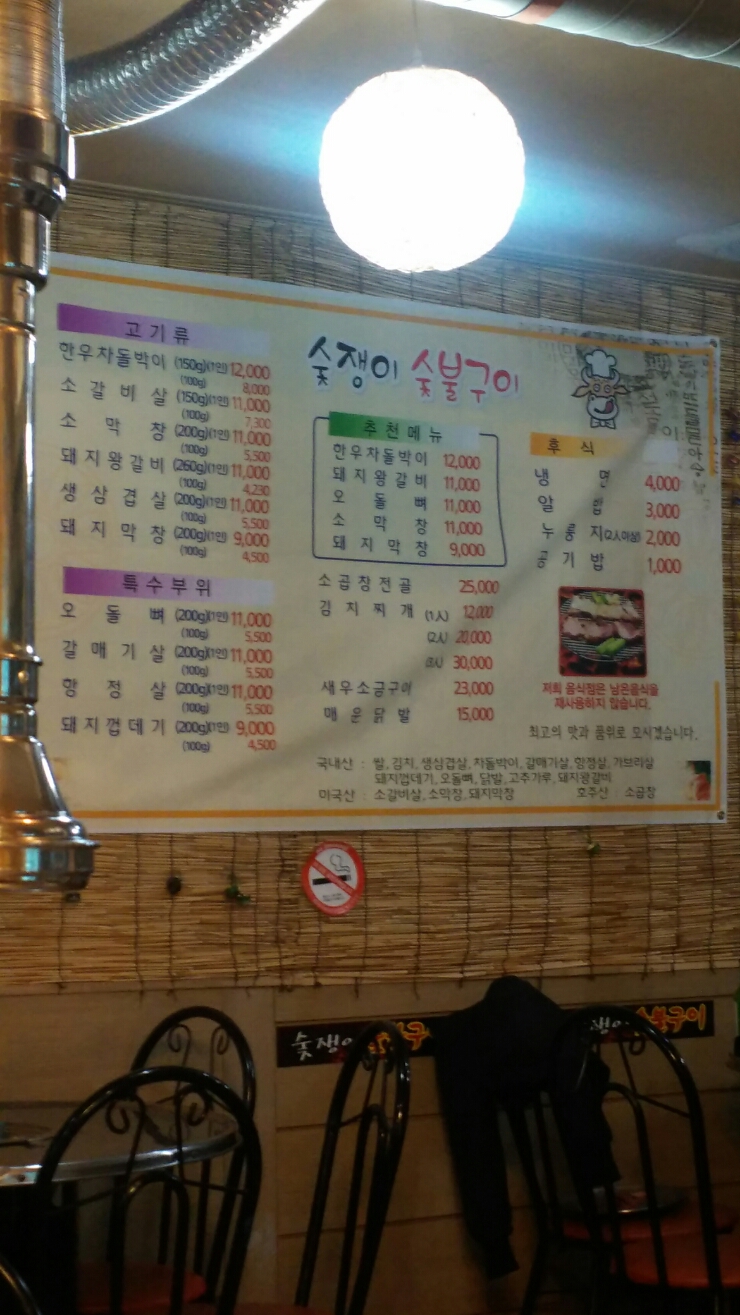 고기류
한우차돌박이 (150g)(1인) 12,000
(100g) 8,000
소갈비살 (150g)(1인) 11,000
(100g) 7,300
소막창 (200g)(1인) 11,000
(100g) 5,500
돼지왕갈비 (260g)(1인) 11,000
(100g) 4,230
생삼겹살 (200g)(1인) 11,000
(100g) 5,500
돼지막창 (200g)(1인) 9,000
(100g) 4,500
특수부위
오돌뼈 (200g)(1인) 11,000
(100g) 5,500
갈매기살 (200g)(1인) 11,000
(100g) 5,500
항정살 (200g)(1인) 11,000
(100g) 5,500
돼지껍데기 (200g)(1인) 9,000
(100g) 4,500
숯쟁이 숯불구이
추천메뉴
한우차돌박이 12,000
돼지왕갈비 11,000
오돌뼈 11,000
소막창 11,000
돼지막창 9,000
소곱창전골 25,000
김치찌개 (1人) 12,000
(2人) 20,000
(3人) 30,000
새우소금구이 23,000
매운닭발 15,000
후식
냉면 4,000
알밥 3,000
누룽지(2人이상) 2,000
공기밥 1,000
저희 음식점은 남은음식을
재사용하지 않습니다.
최고의 맛과 품위로 모시겠습니다.
국내산 : 쌀, 김치, 생삼겹살, 차돌박이, 갈매기살, 항정살, 가브리살
돼지껍데기, 오돌뼈, 닭발, 고추가루, 돼지왕갈비
미국산 : 소갈비살, 소막창, 돼지막창 호주산 : 소곱창
숯쟁이
불구이